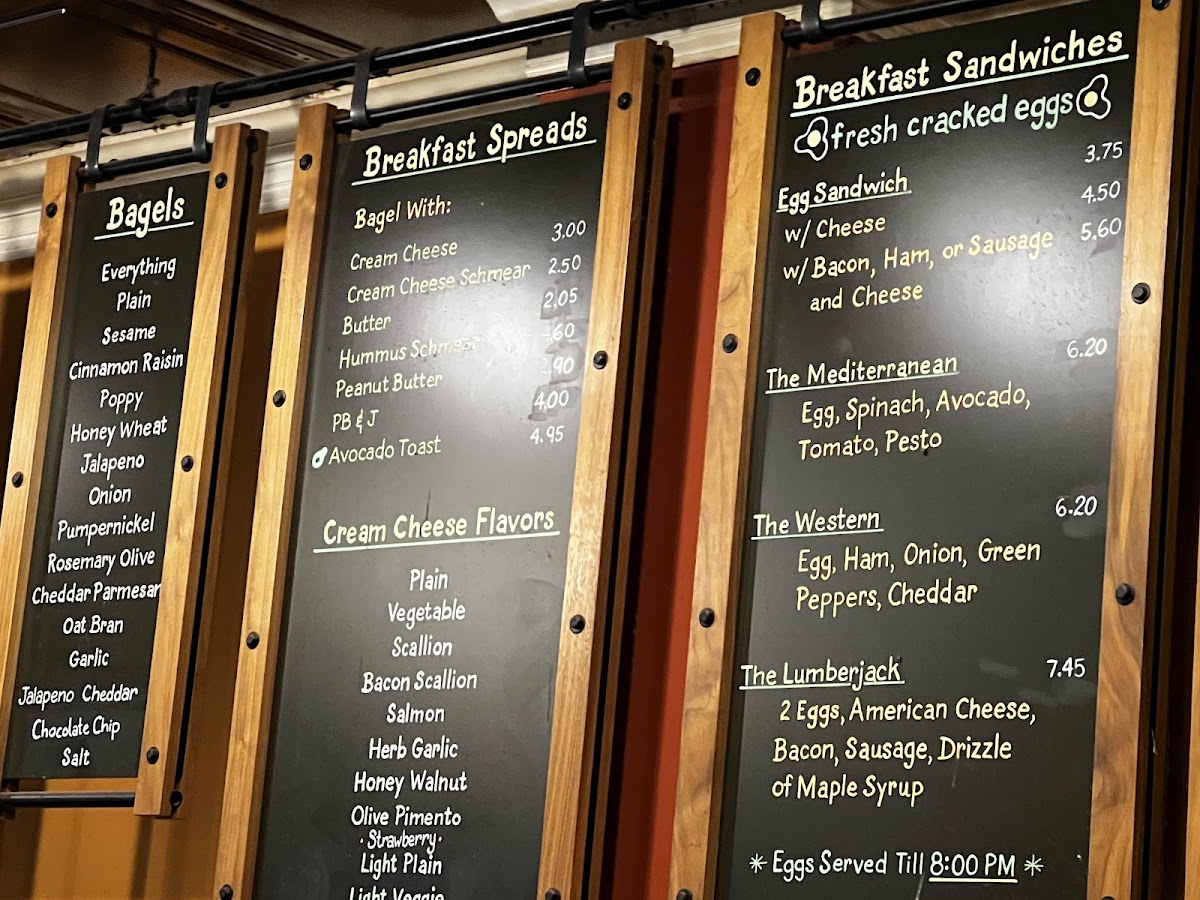 Bagels
Everything
Plain
Sesame
Cinnamon Raisin
Poppy
Honey Wheat
Jalapeno
Onion
Pumpernickel
Rosemary Olive
Cheddar Parmesan
Oat Bran
Garlic
Jalapeno Cheddar
Chocolate Chip
Salt
Breakfast Spreads
Bagel With:
Cream Cheese 3.00
Cream Cheese Schmear 2.50
Butter 2.05
Hummus Schmear
Peanut Butter 2.90
PB & J 4.00
Avocado Toast 4.95
Cream Cheese Flavors
Plain
Vegetable
Scallion
Bacon Scallion
Salmon
Herb Garlic
Honey Walnut
Olive Pimento
· Strawberry ·
Light Plain
Light Veggie
Breakfast Sandwiches
fresh cracked eggs
Egg Sandwich 3.75
w/ Cheese 4.50
w/ Bacon, Ham, or Sausage 5.60
and Cheese
The Mediterranean 6.20
Egg, Spinach, Avocado,
Tomato, Pesto
The Western 6.20
Egg, Ham, Onion, Green
Peppers, Cheddar
The Lumberjack 7.45
2 Eggs, American Cheese,
Bacon, Sausage, Drizzle
of Maple Syrup
* Eggs Served Till 8:00 PM *